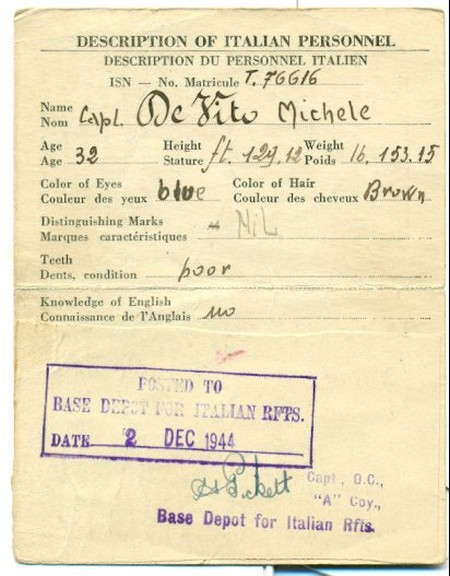 DESCRIPTION OF ITALIAN PERSONNEL
DESCRIPTION DU PERSONNEL ITALIEN
ISN — No. Matricule T. 76616
Name
Nom Capl. De Vito Michele
Age Height Weight
Age 32 Stature ft. 129.12 Poids lb. 153.15
Color of Eyes Color of Hair
Couleur des yeux blue Couleur des cheveux Brown
Distinguishing Marks
Marques caractéristiques NiL
Teeth
Dents, condition poor
Knowledge of English
Connaissance de l'Anglais no
POSTED TO
BASE DEPOT FOR ITALIAN RFTS.
DATE 2 DEC 1944
Capt, O.C.,
"A" Coy.,
Base Depot for Italian Rfts.